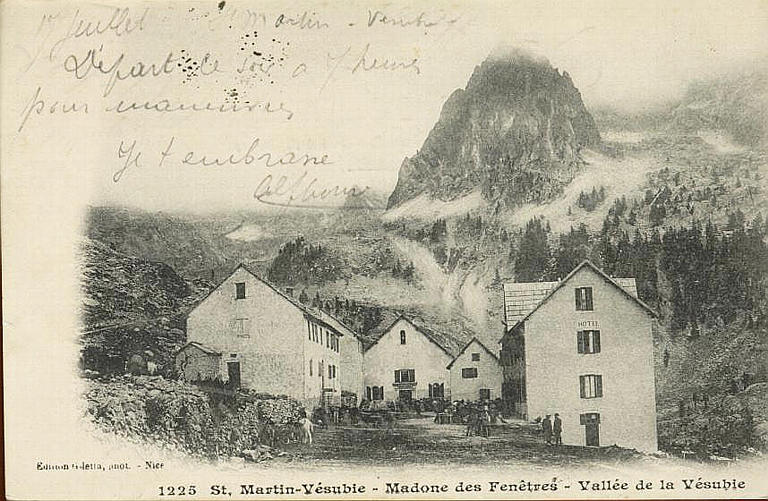 17 Juillet St Martin - Vésubie
Départ ce soir à 7 heures
pour manœuvres
Je t'embrasse
HOTEL
Edition Giletta, phot. - Nice
1225 St. Martin-Vésubie - Madone des Fenêtres - Vallée de la Vésubie